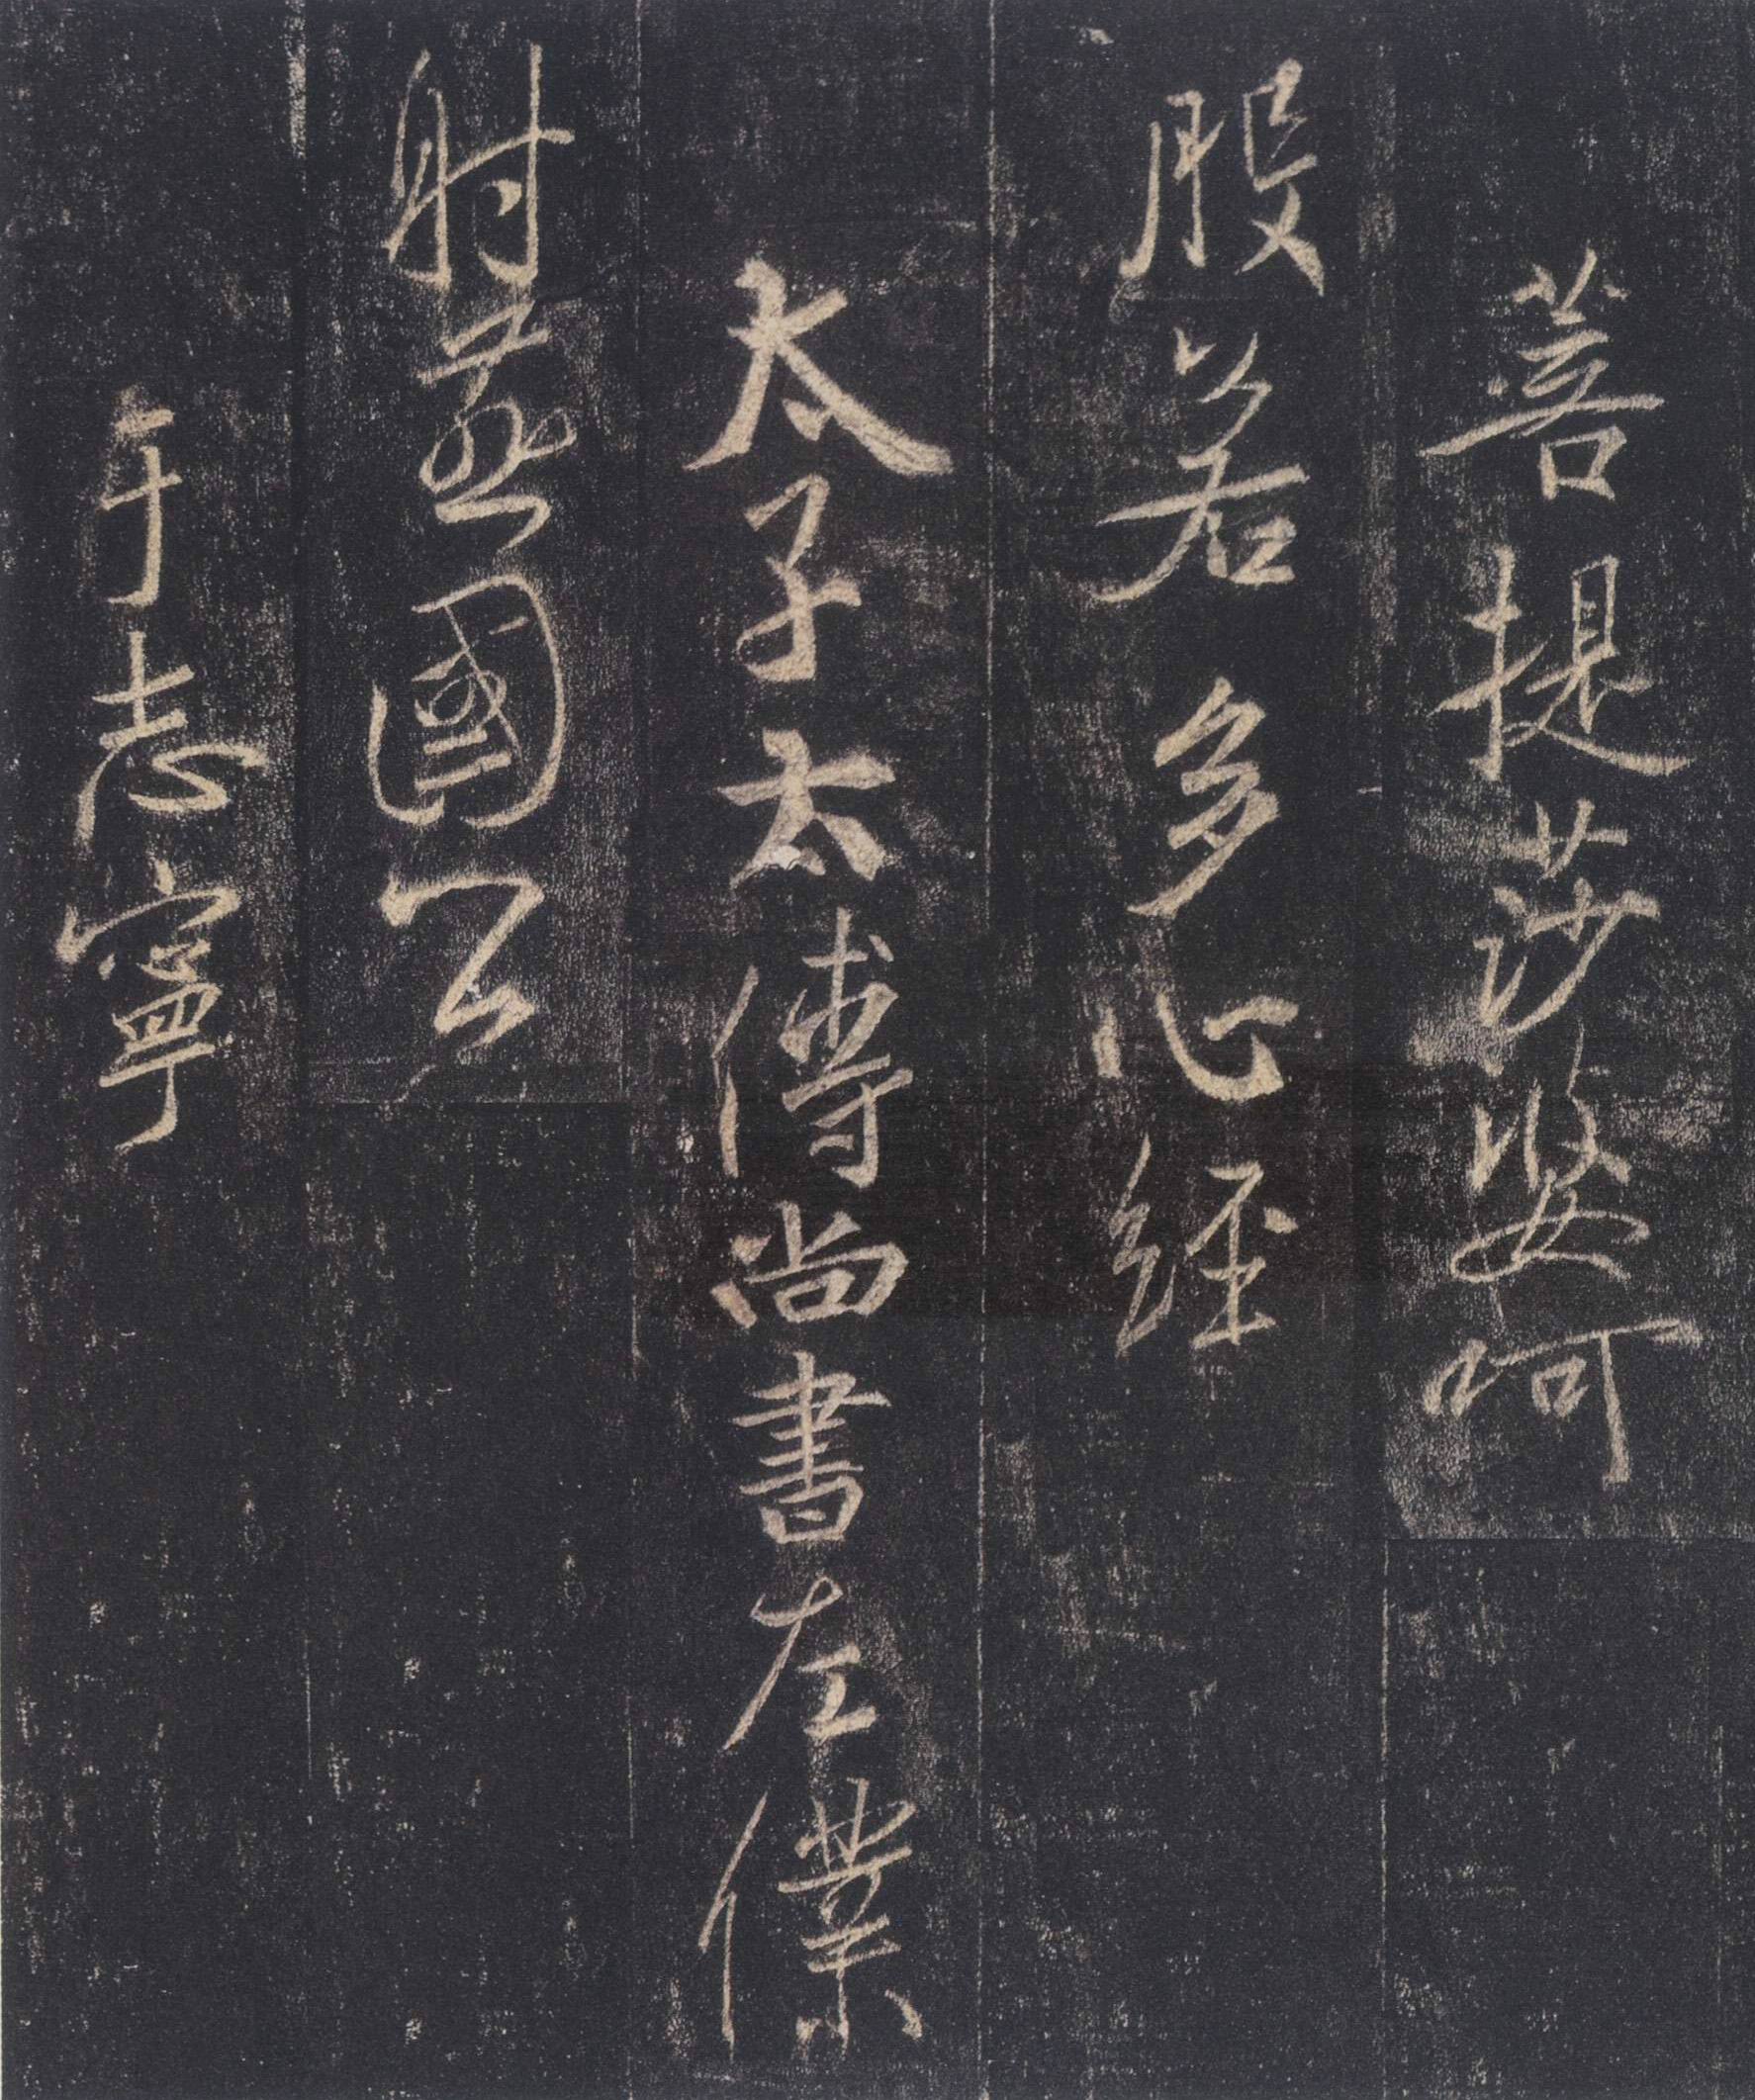 菩提莎婆呵
般若多心経
太子太傅尚書左僕
射燕國公
于志寧